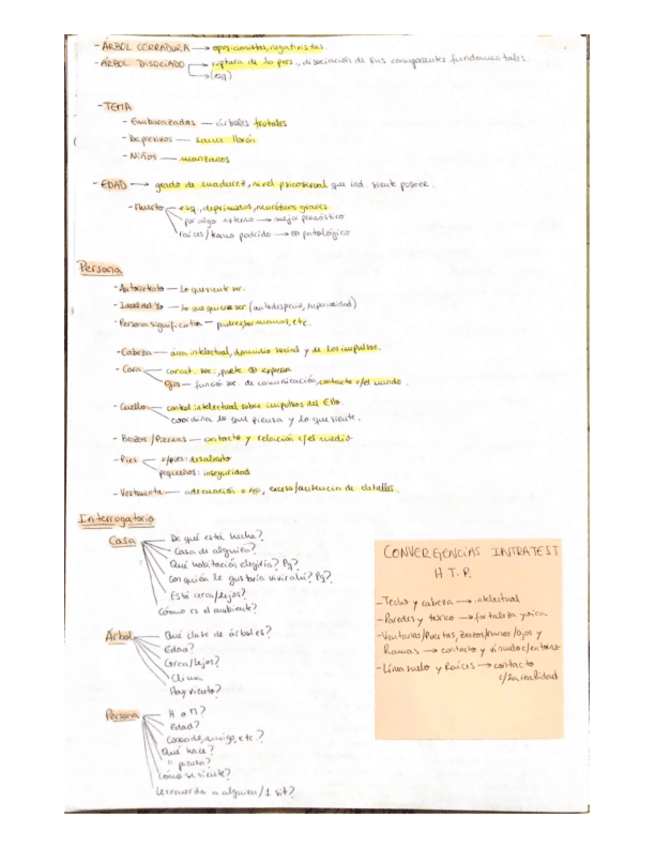 - ÁRBOL CERRADURA → oposicionistas, negativistas.
- ÁRBOL DISOCIADO → ruptura de la pers., disociación de sus componentes fundamentales.
→ (esq)
- TEMA
- Embarazadas — árboles frutales
- Depresivos — sauce llorón
- Niños — manzanos
- EDAD → grado de madurez, nivel psicosexual que ind. siente poseer.
- Muerto — esq., deprimidos, neuróticos graves
por algo externo → mejor pronóstico
raíces/tronco podrido → ⊕ patológico
Persona
- Autorretrato — lo que siente ser.
- Ideal del Yo — lo que quiere ser (autodesprecio, superioridad)
- Persona significativa — padres, hermanos, etc.
- Cabeza — área intelectual, dominio social y de los impulsos.
- Cara — caract. soc., parte ⊕ expresiva
Ojos — función soc. de comunicación, contacto c/el mundo.
- Cuello — control intelectual sobre impulsos del Ello.
coordina lo que piensa y lo que siente.
- Brazos/Piernas — contacto y relación c/el medio
- Pies — s/pies: desaliento
pequeños: inseguridad
- Vestimenta — adecuación o no, exceso/ausencia de detalles.
Interrogatorio
Casa — De qué está hecha?
Casa de alguien?
Qué habitación elegiría? Pq?
Con quién le gustaría vivir ahí? Pq?
Está cerca/lejos?
Cómo es el ambiente?
Árbol — Qué clase de árbol es?
Edad?
Cerca/lejos?
Clima
Hay viento?
Persona — H o M?
Edad?
Conocido, amigo, etc.?
Qué hace?
" piensa?
Cómo se siente?
Le recuerda a alguien/1 sit?
CONVERGENCIAS INTRATEST
H.T.P.
- Techo y cabeza → intelectual
- Paredes y tronco → fortaleza yoica
- Ventanas/Puertas, brazos/manos/ojos y
Ramas → contacto y vínculo c/entorno
- Línea suelo y Raíces → contacto
c/la realidad